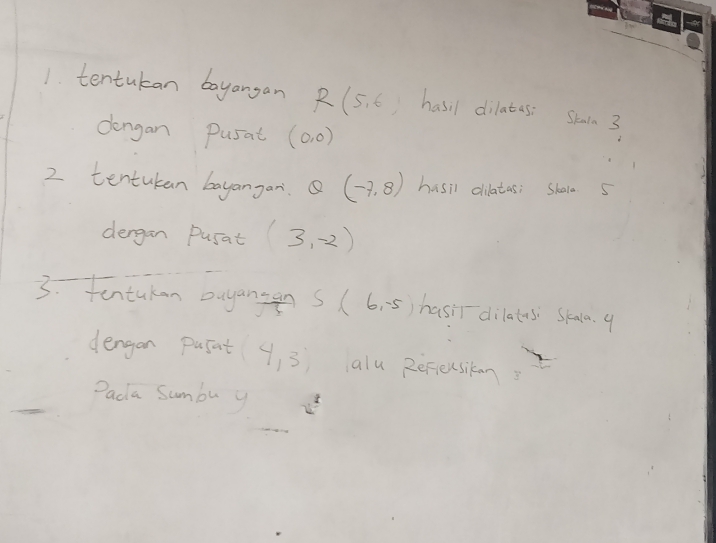 1. tentukan bayangan R (5,6) hasil dilatasi Skala 3
dengan Pusat (0,0)
2 tentukan bayangan. Q (-7,8) hasil dilatasi Skala 5
dengan Pusat (3,-2)
3. tentukan bayangan S (6,-5) hasil dilatasi Skala. 4
dengan Pusat (4,3) lalu Refleksikan
Pada Sumbu y